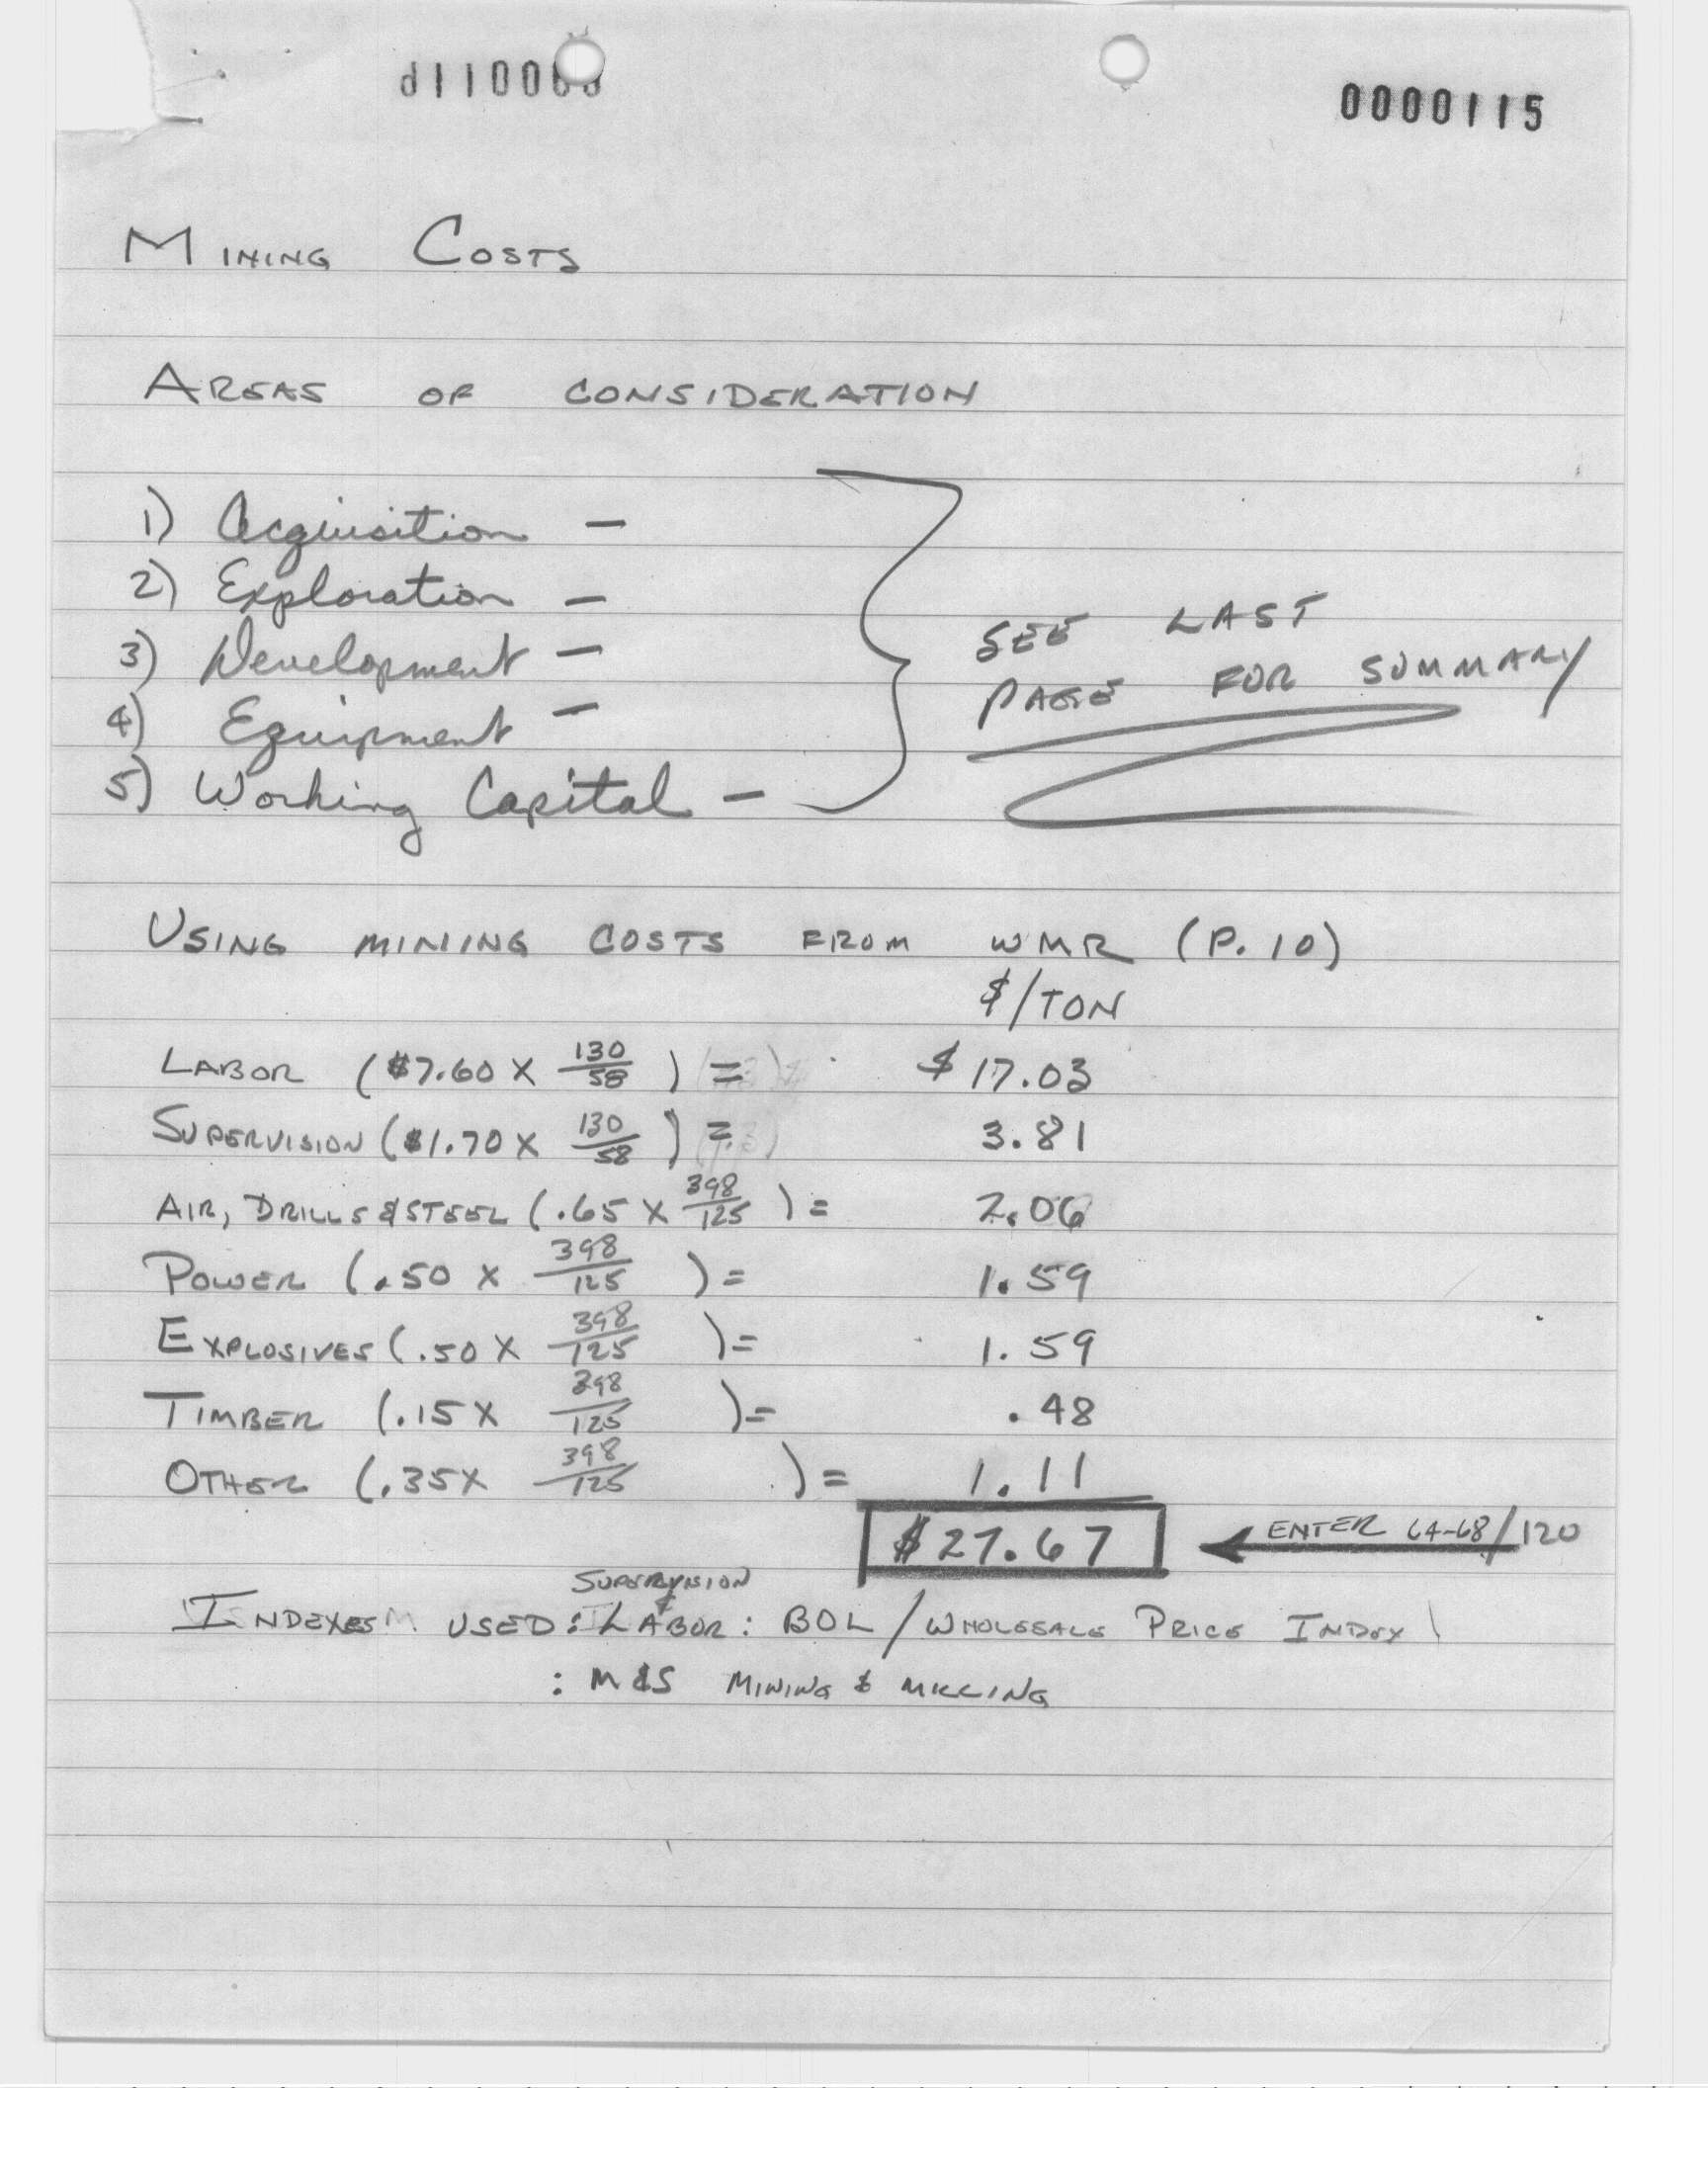 0000115
MINING COSTS
AREAS OF CONSIDERATION
1) Acquisition —
2) Exploration —
3) Development —
4) Equipment —
5) Working Capital —
SEE LAST
PAGE FOR SUMMARY
USING MINING COSTS FROM WMR (P. 10)
$/TON
LABOR ($7.60 X 130/58) = $17.03
SUPERVISION ($1.70 X 130/58) = 3.81
AIR, DRILLS & STEEL (.65 X 398/125) = 2.06
POWER (.50 X 398/125) = 1.59
EXPLOSIVES (.50 X 398/125) = 1.59
TIMBER (.15 X 398/125) = .48
OTHER (.35X 398/125) = 1.11
$27.67 ENTER 64-68/120
SUPERVISION
INDEXES USED: LABOR: BOL/WHOLESALE PRICE INDEX
: M&S MINING & MILLING